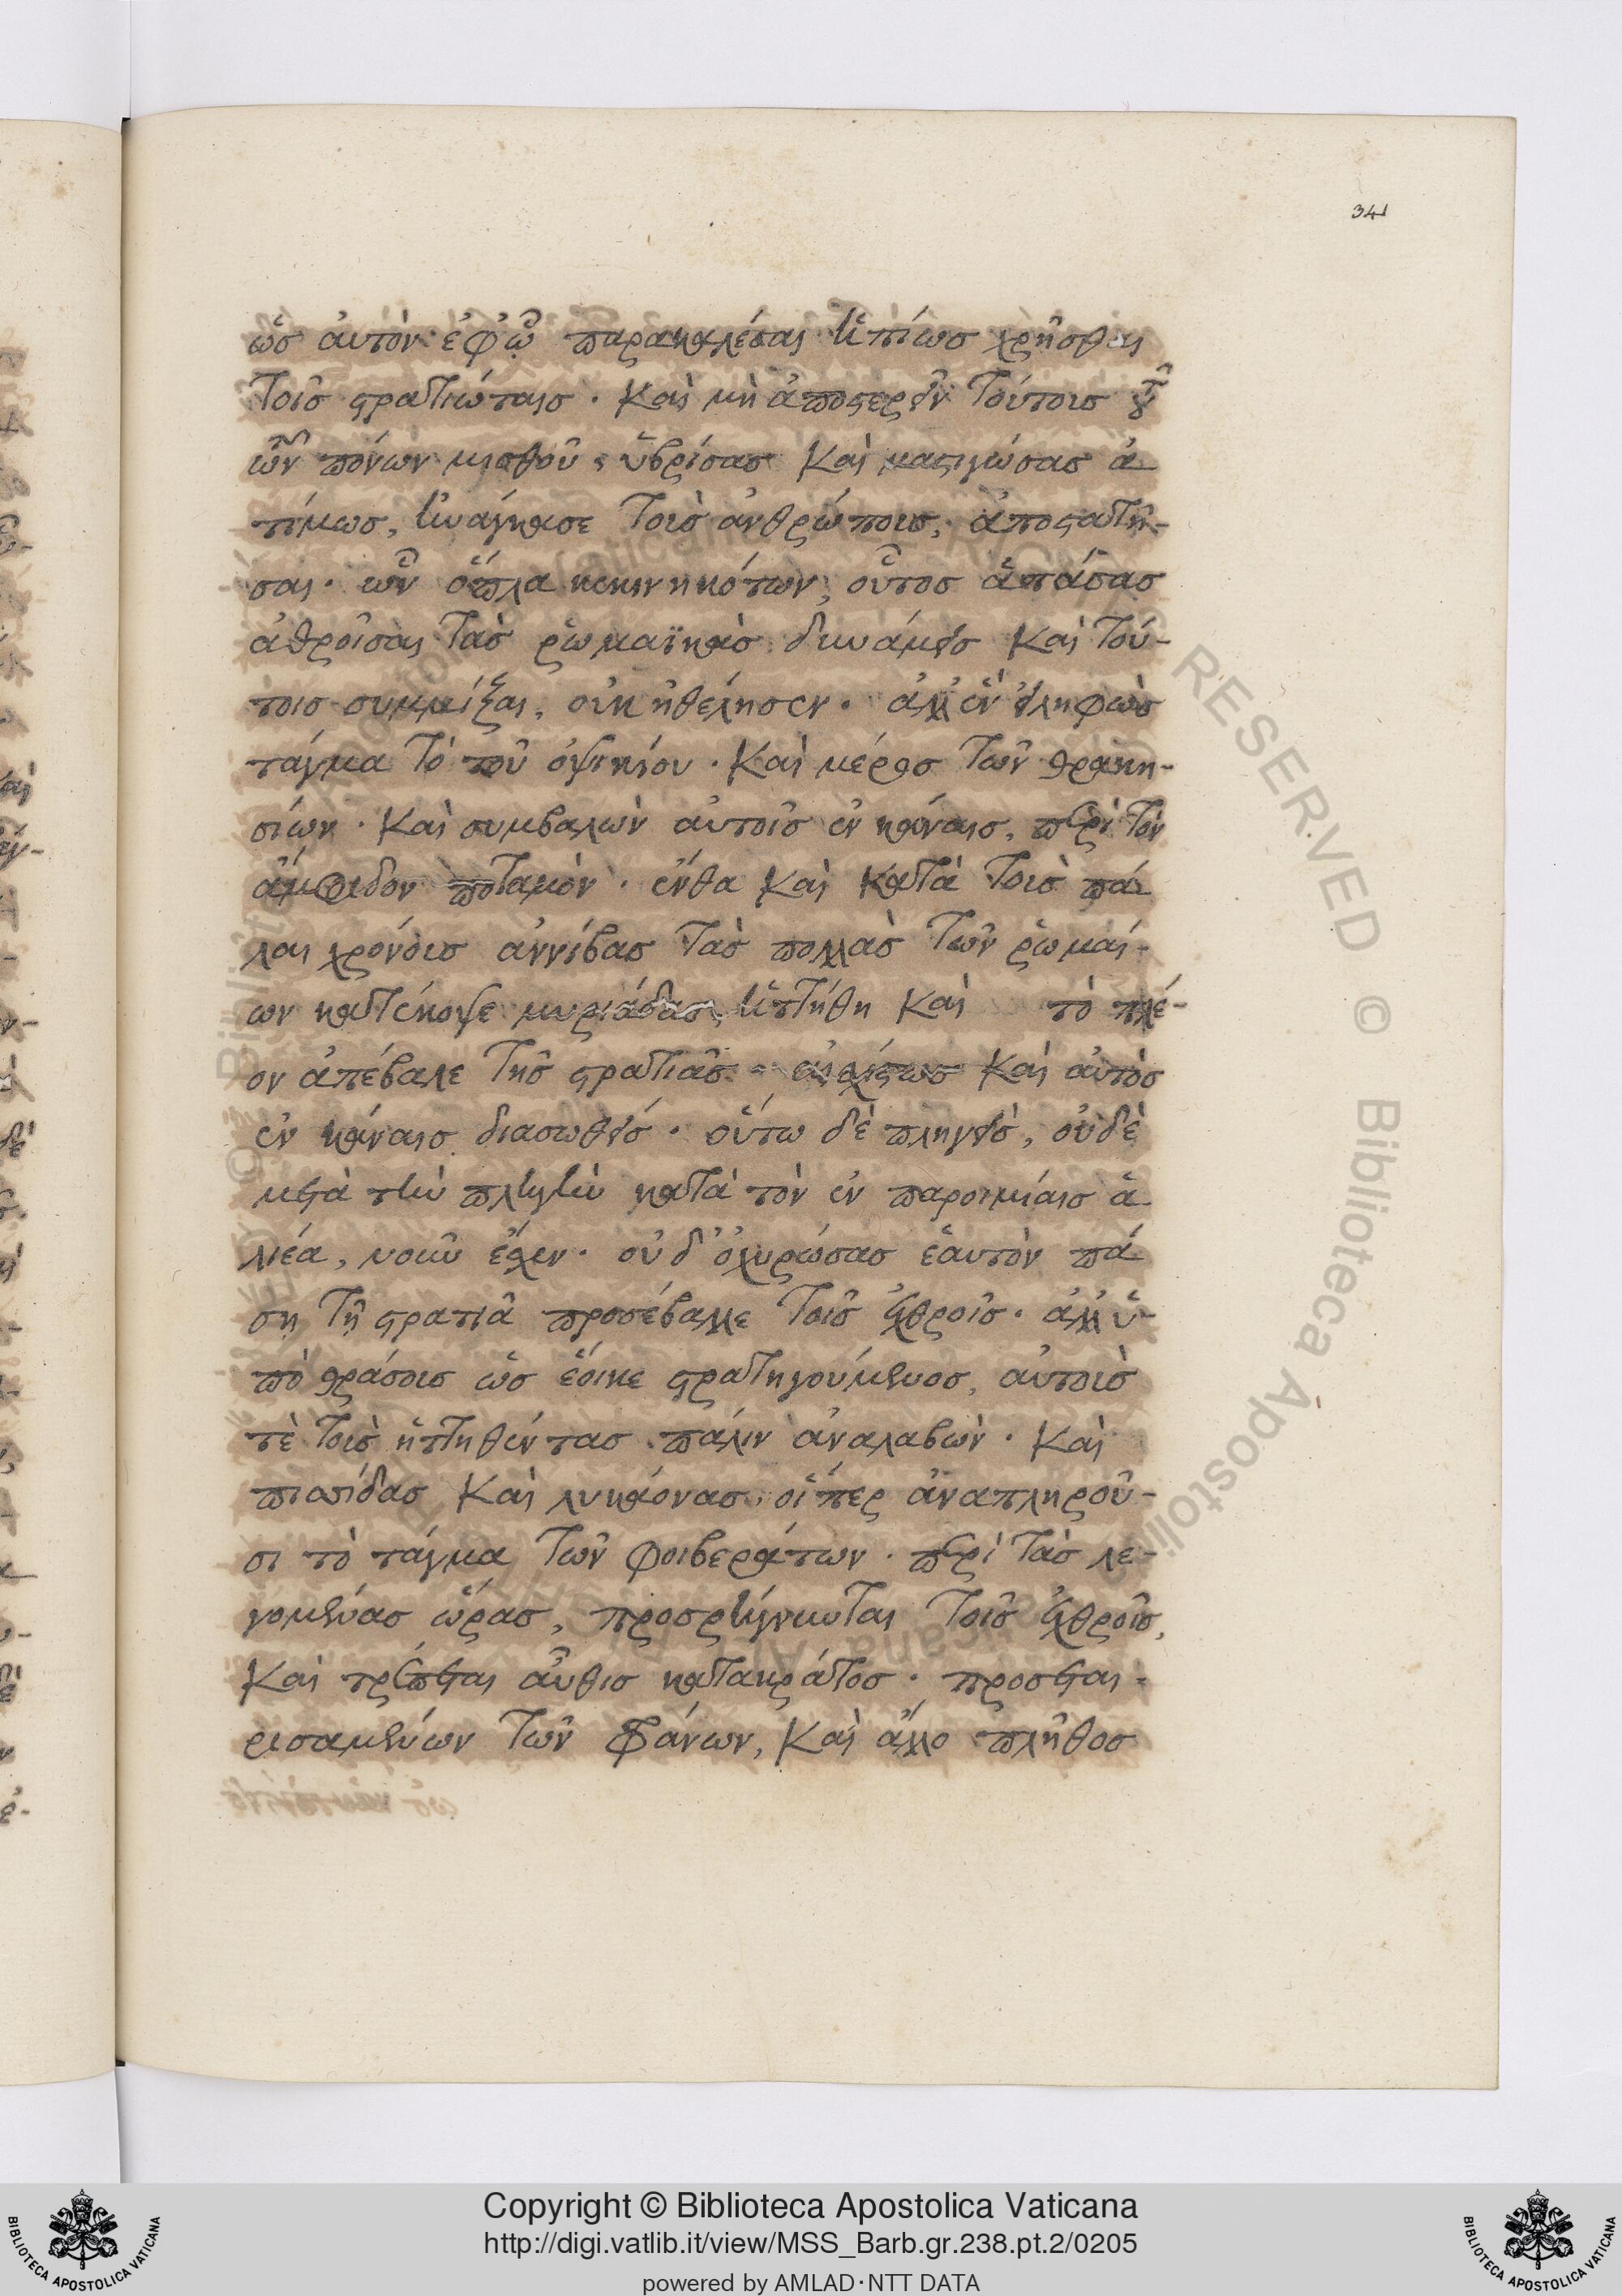 341
ὡσ ἀυτὸν ἐφ' ᾧ παρακαλέσαι ἠπίωσ χρῆσθαι
τοῖσ στρατιώταισ · καὶ μὴ ἀποστερεῖν τούτουσ τοῦ
ὧν πόνων μισθοῦ, ὑβρίσασ καὶ μαστιγώσασ ἀ-
τίμωσ, ἠνάγκασε τοὺσ ἀνθρώπουσ, ἀποστατῆ-
σαι · ὧν ὅπλα κεκινηκότων, οὗτοσ ἁπάσασ
ἀθροῖσαι τὰσ ῥωμαϊκὰσ δυνάμεισ καὶ τού-
τοισ συμμίξαι, οὐκ ἠθέλησεν · ἀλλ' ἓν εἰληφὼσ
τάγμα τὸ τοῦ ὀψικίου · καὶ μέροσ τῶν θρακη-
σίων · καὶ συμβαλὼν ἀυτοῖσ ἐν κάνναισ, περὶ τὸν
ἄμφιδον ποταμὸν · ἔνθα καὶ κατὰ τοὺσ πά-
λαι χρόνουσ ἀννίβασ τὰσ πολλὰσ τῶν ῥωμαί-
ων κατέκοψε μυριάδασ, ἡττήθη καὶ τὸ πλέ-
ον ἀπέβαλε τῆσ στρατιᾶσ · αἰσχίστωσ καὶ ἀυτὸσ
ἐν κάναισ διασωθείσ · οὕτω δὲ πληγεὶσ, οὐδὲ
μετὰ τὴν πληγὴν κατὰ τὸν ἐν παροιμίαισ ἁ-
λιέα, νοῦν ἔχεν · οὐδ' ὀχυρώσασ ἑαυτὸν πά-
σῃ τῇ στρατιᾷ προσέβαλλε τοῖσ ἐχθροῖσ · ἀλλ' ὑ-
πὸ θράσουσ ὡσ ἔοικε στρατηγούμενοσ, ἀυτοὺσ
τὲ τοὺσ ἡττηθέντασ πάλιν ἀναλαβὼν · καὶ
πισσίδασ καὶ λυκάονασ, οἵπερ ἀναπληροῦ-
σι τὸ τάγμα τῶν φοιβεράτων · περὶ τὰσ λε-
γομένασ ὥρασ, προσρήγνυται τοῖσ ἐχθροῖσ,
καὶ τρέπεται αὖθισ κατακράτοσ · προσεται-
ρισαμένων τῶν ἀφάνων, καὶ ἄλλο πλῆθοσ
Copyright © Biblioteca Apostolica Vaticana
http://digi.vatlib.it/view/MSS_Barb.gr.238.pt.2/0205
powered by AMLAD·NTT DATA
BIBLIOTECA APOSTOLICA VATICANA
BIBLIOTECA APOSTOLICA VATICANA